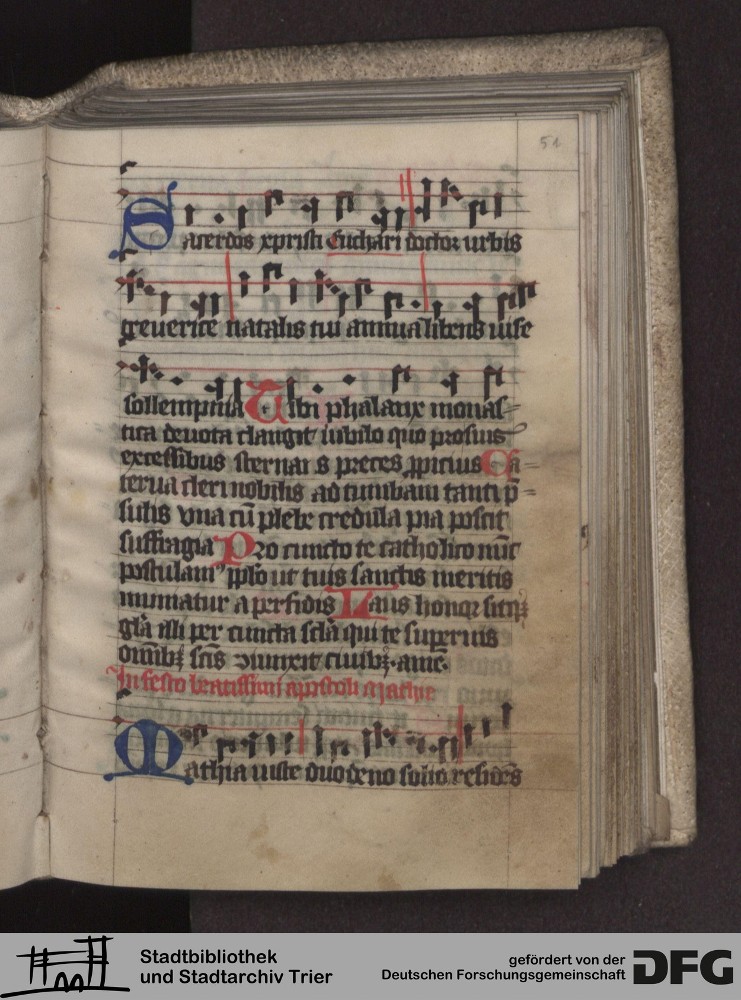 51
Sacerdos xpristi Euchari doctor urbis
treverice natalis tui annua libens vise
sollempnia Tibi phalanx monas-
tica devota clangit iubilo quo prosius
excessibus sternaris preces ꝓpicius Ca=
terva cleri nobilis ad tumbam tanti p̄=
sulis vna cū plebe credula pia poscit
suffragia Pro cuncto te catholico nūc
postulamꝰ pplo ut tuis sanctis meritis
muniatur a perfidis Laus honor sitqꝫ
glā illi per cuncta sclā qui te supernis
omībꝫ scīs iunxit ciuibꝫ. amē.
In festo beatissimi apostoli Mathie
Mathia iuste duodeno solio residēs
Stadtbibliothek
und Stadtarchiv Trier
gefördert von der
Deutschen Forschungsgemeinschaft DFG